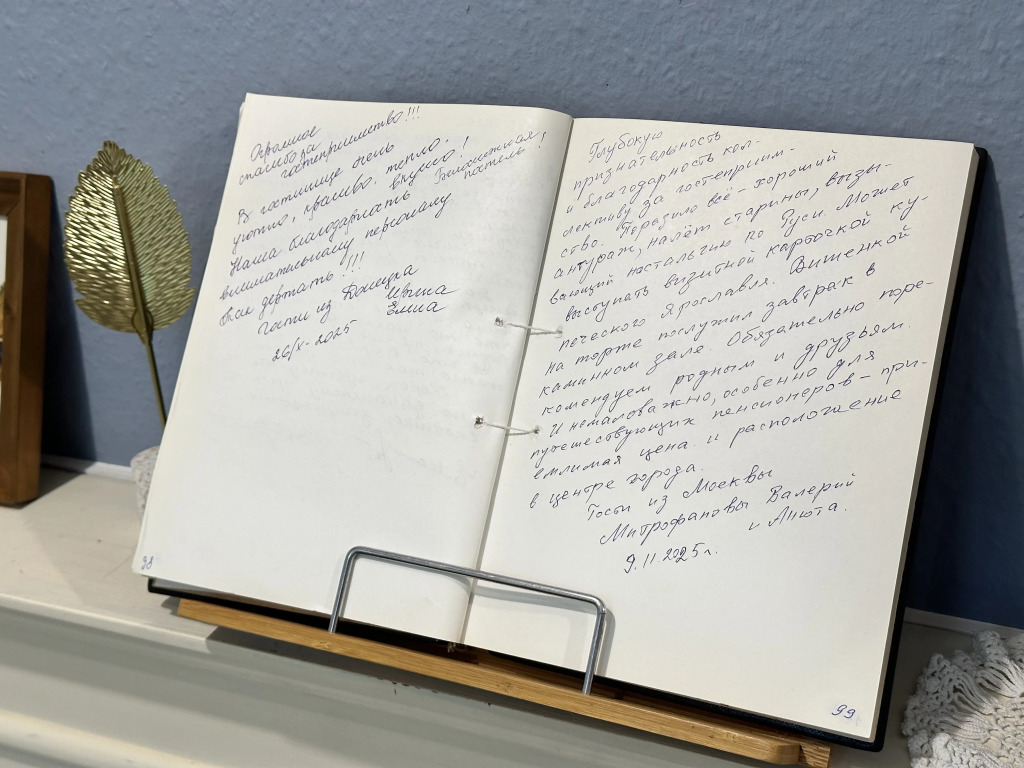 Огромное
спасибо за
гостеприимство!!!
В гостинице очень
уютно, красиво, тепло,
вкусно!
Наша благодарность
внимательному персоналу
Так держать!!!
гости из Донецка
Ирина
Елена
26/X-2025
98
Глубокую
признательность
и благодарность кол-
лективу за гостеприим-
ство. Поразило всё - хороший
антураж, налёт старины, вызы-
вающий ностальгию по Руси. Может
выступать визитной карточкой ку-
печеского Ярославля. Вишенкой
на торте послужил завтрак в
каминном зале. Обязательно поре-
комендуем родным и друзьям.
И немаловажно, особенно для
путешествующих пенсионеров - при-
емлимая цена и расположение
в центре города.
Гости из Москвы
Митрофановы Валерий
и Анюта.
9.11.2025г.
99